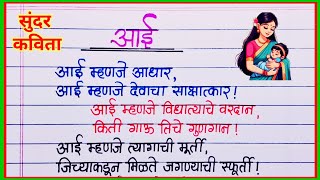 सुंदर
कविता
आई
आई म्हणजे आधार,
आई म्हणजे देवाचा साक्षात्कार!
आई म्हणजे विधात्याचे वरदान,
किती गाऊ तिचे गुणगान!
आई म्हणजे त्यागाची मूर्ती,
जिच्याकडून मिळते जगण्याची स्फूर्ती!